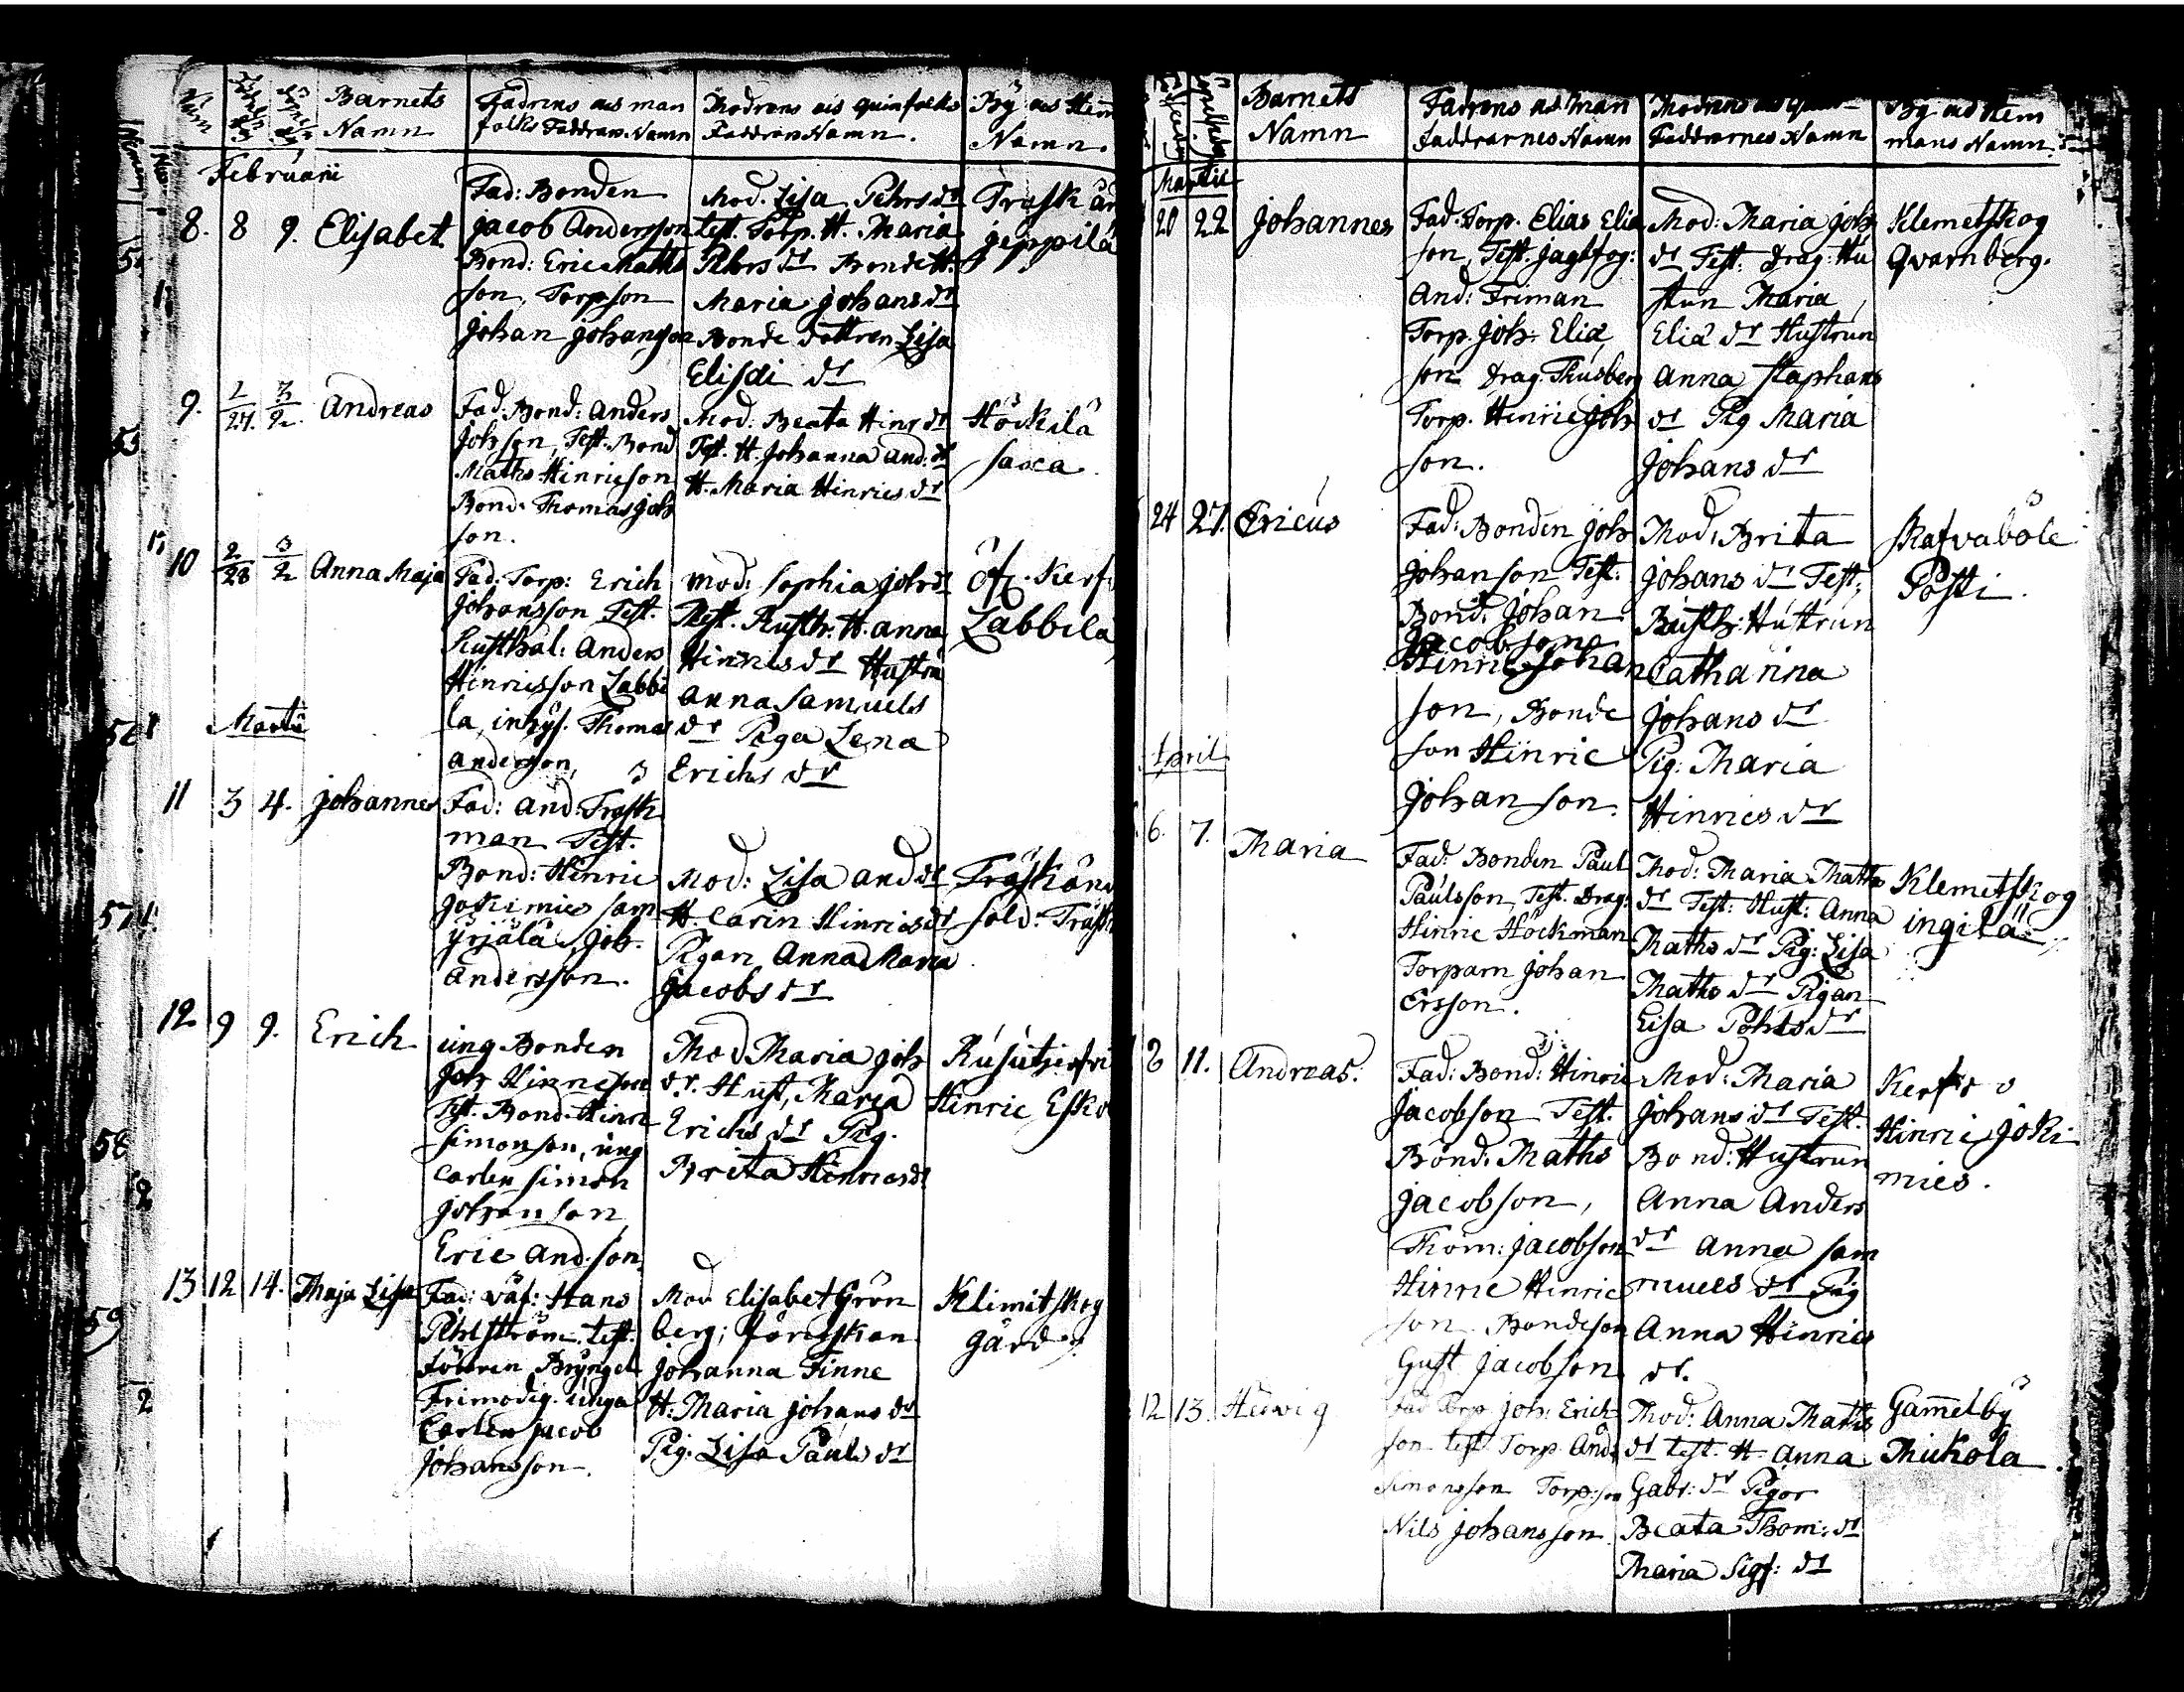 Barnets
Namn
Fadrens ass man
folks Faddrars Namn
Modrens ass quinfolks
Faddrars Namn.
By ass Hem
Namn.
Februarii
8. 8 9. Elisabet
Fad: Bonden
Jacob Andersson
Bond: Eric Maths
son, Torpson
Johan Johansson
Mod. Lisa Pehrs dr
test. Torp. H. Maria
Pehrs dr Bonde H.
Maria Johans dr
Bonde dottren Lisa
Elisæi dr
Träsk än
Jeppilä
9. 1/24. 3/2. Andreas
Fad: Bond: Anders
Johsson, Test. Bond
Maths Hinricson
Bond. Thomas Joh
son.
Mod: Beata Hinr dr
Test. H. Johanna And. dr
H. Maria Hinrics dr
Höckilä
10 2/28 3/2 Anna Maja
Fad: Torp: Erich
Johansson Test.
Rusthål: Anders
Hinricsson Labbi
la, inhys. Thomas
Anderson,
Mod: Sophia Johs dr
Test. Rusth. H. Anna
Hinrics dr Hustru
Anna Samuels
dr Piga Lena
Erichs dr
Öf. Kerf
Labbila
Martii
11 3 4. Johannes
Fad: And: Träsk
man Test.
Bond: Hinric
Jokimies sam
Yrjälä, Joh.
Andersson.
Mod: Lisa And dr
H. Carin Hinrics dr
Pigan Anna Maria
Jacobs dr
Träskän
sold: Träsk
12 9 9. Erich
ung Bonden
Joh Hinricson
Test. Bond. Hinric
Simonson, ung
Carlen Simon
Johanson
Eric And.son.
Mod Maria Joh
dr. Hust, Maria
Erichs dr Pig.
Brita Hinrics dr
Hinric Esko
13 12 14. Maja Lisa
Fad: Väf: Hans
Pihlström. test.
Frimodig unga
Carlen Jacob
Johansson.
Mod Elisabet Grön
berg;
Johanna Finne
H: Maria Johans dr
Pig: Lisa Pauls dr
Klimitskog
gård
Barnets
Namn
Fadrens ass Man
Faddrarnes Namn
Faddrarnes Namn
By ass Hem
mans Namn.
Martii
20 22 Johannes
Fad: Torp. Elias Elia
son, Test. Jagtfog:
And: Friman
Torp. Joh: Eliæ
son Drag. Thusberg
Torp. Hinric Joh
son.
Mod: Maria Joh
dr Test: Drag: Hu
strun Maria
Eliæ dr Hustrun
Anna Staphans
dr Pig Maria
Johans dr
Klemetskog
Qvarnberg.
24 27. Ericus
Fad: Bonden Joh
Johanson Test.
Bond. Johan
Jacobsons
Hinric Johan
son, Bonde
son Hinric
Johanson.
Mod: Brita
Johans dr Test.
Rusth: Hustrun
Catharina
Johans dr
Pig: Maria
Hinrics dr
Skafvaböle
Posti.
April
6. 7. Maria
Fad: Bonden Paul
Paulsson, Test. Drag:
Hinric Höckman
Torparn Johan
Ersson.
Mod: Maria Maths
dr Test: Hust: Anna
Maths dr Pig: Lisa
Maths dr Pigan
Lisa Pehrs dr
Klemetskog
ingilä
8 11. Andreas.
Fad: Bond: Hinric
Jacobson Test.
Bond: Maths
Jacobson,
Thom: Jacobson
Hinric Hinric
son. Bondeson
Gust Jacobson
Mod: Maria
Johans dr Test.
Bond: Hustrun
Anna Anders
dr Anna Sam
muels dr Pig
Anna Hinrics
dr.
Hinric Joki
mies.
12 13. Hedwig
Fad Torp Joh: Erich
son test Torp And:
Simonsson Torp:son
Nils Johansson.
Mod: Anna Maths
dr test. H. Anna
Gabr: dr Pigor
Beata Thom: dr
Maria Sigf: dr
Gammelby
Mickola.